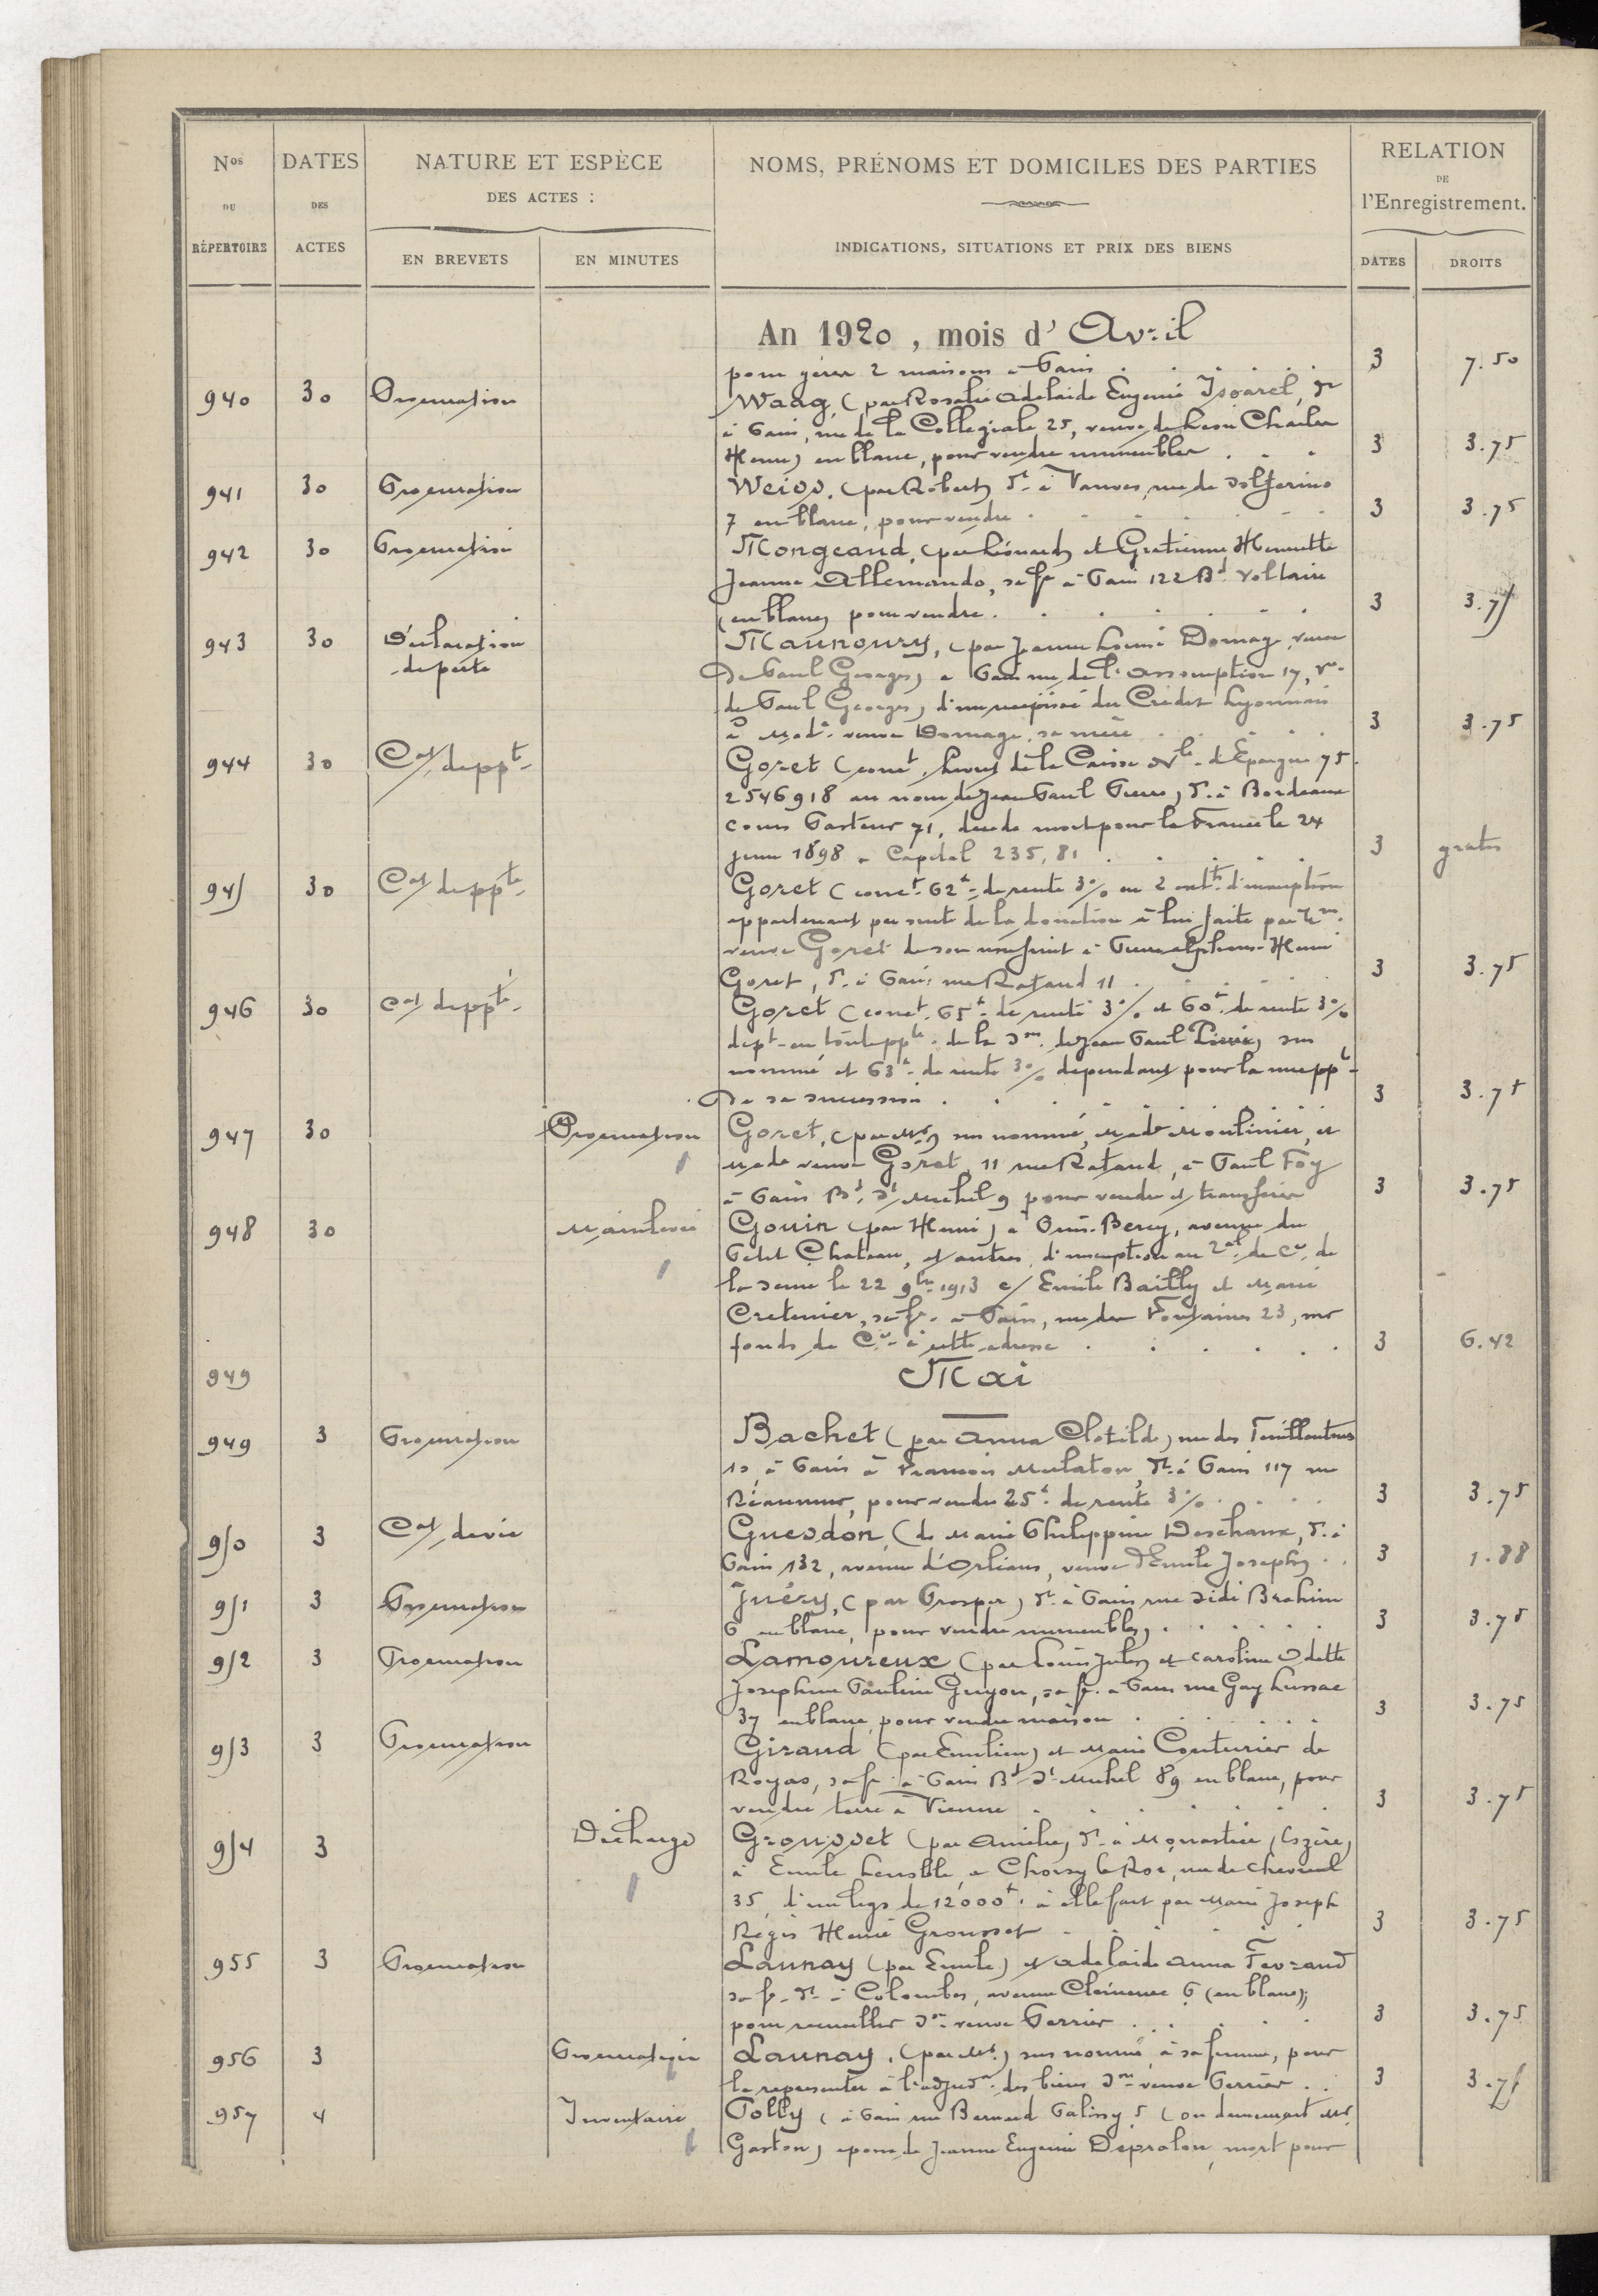 Nos DATES NATURE ET ESPÈCE NOMS, PRÉNOMS ET DOMICILES DES PARTIES RELATION
DU DES DES ACTES : DE
l'Enregistrement.
RÉPERTOIRE ACTES EN BREVETS EN MINUTES INDICATIONS, SITUATIONS ET PRIX DES BIENS DATES DROITS
An 1920, mois d' Avril
pour gérer 2 maisons à Paris 3 7.50
940 30 Procuration Waag, (par Rosalie Adelaide Eugenie Isoarel, dt
à Paris, rue de la Collegiale 25, veuve de Léon Charles
Henri) en blanc, pour vendre immeubles 3 3.75
941 30 Procuration Weiss, (par Robert) dt à Vanves, rue de Solferino
7 en blanc, pour vendre 3 3.75
942 30 Procuration Mongeaud, (par Léonard) et Gratienne Henriette
Jeanne Allemando, sa fe à Paris 122 Bd Voltaire
(en blanc) pour vendre 3 3.75
943 30 Déclaration Maunoury, (par Jeanne Louise Domage, veuve
de perte De Paul Georges) à Paris rue de l'Assomption 17, ve
de Paul Georges) d'un recepissé du Crédit Lyonnais
à Made veuve Domage, sa mère 3 3.75
944 30 Cat de ppté Goret (conct livret de la Caisse Nle d'Epargne 75
2546918 au nom de Jean Paul Pierre, dt à Bordeaux
cours Pasteur 71, décédé mort pour la France le 24
juin 1898 - Capital 235,81 3 gratis
945 30 Cat de ppté Goret (conct 62f de rente 3% en 2 d'inscription
appartenant par suite de la donation à lui faite par
veuve Goret de son usufruit à Pierre Alphonse Henri
Goret, dt à Paris rue Rataud 11 3 3.75
946 30 Cat de ppté Goret (conct 65f de rente 3% et 60f de rente 3%
dept en toute ppté de la son de Jean Paul Pierre) sus
nommé et 63f de rente 3% dependant pour la nue ppté
De sa succession 3 3.75
947 30 Procuration Goret, (par Mr) sus nommé, Made Moulinier, et
Made veuve Goret, 11 rue Rataud, à Paul Foy
à Paris Bd St Michel 9 pour vendre et transférer 3 3.75
948 30 Mainlevée Gouin (par Henri) à Paris-Bercy, avenue du
Petit Chateau, et autres, d'inscription au de Ce de
la Seine le 22 9bre 1913 c/ Emile Bailly et Marie
Cretenier, sa fe à Paris, rue des Fontaines 23, sur
fonds de Ce à cette adresse 3 6.42
949 Mai
949 3 Procuration Bachet (par Anna Clotilde) rue des Feuillantines
10, à Paris à François Mulaton, dt à Paris 117 rue
Réaumur, pour vendre 25f de rente 3% 3 3.75
950 3 Cat de vie Guesdon (de Marie Philippine Deschaux, dt à
Paris 132, avenue d'Orléans, veuve d'Emile Joseph) 3 1.88
951 3 Procuration Juéry, (par Prosper) dt à Paris rue Sidi Brahim
6 en blanc, pour vendre immeubles 3 3.75
952 3 Procuration Lamoureux (par Louis Jules) et Caroline Odette
Josephine Pauline Guyon, sa fe à Paris rue Gay Lussac
37 en blanc pour vendre maison 3 3.75
953 3 Procuration Giraud (par Emilien) et Marie Couturier de
Royas, sa fe à Paris Bd St Michel 89 en blanc, pour
vendre terre à Vienne 3 3.75
954 3 Décharge Grousset (par Amélie) dt à Monastier (Lozère)
à Emile , à Choisy le Roi, rue de Chevreul
35, d'un legs de 12000f à elle fait par Marie Joseph
Régis Henri Grousset 3 3.75
955 3 Procuration Launay (par Emile) et Adelaide Anna Ferrand
sa fe dt à Colombes, avenue Clémence 6 (en blanc);
pour recueillir son veuve Perrier 3 3.75
956 3 Procuration Launay, (par Mr) sus nommé à sa femme, pour
la representer à l'adjudon des biens son veuve Perrier 3 3.75
957 4 Inventaire Polly (à Paris rue Bernard Palissy 5 (ou demeurait Mr
Gaston) epoux de Jeanne Eugenie Depralon, mort pour